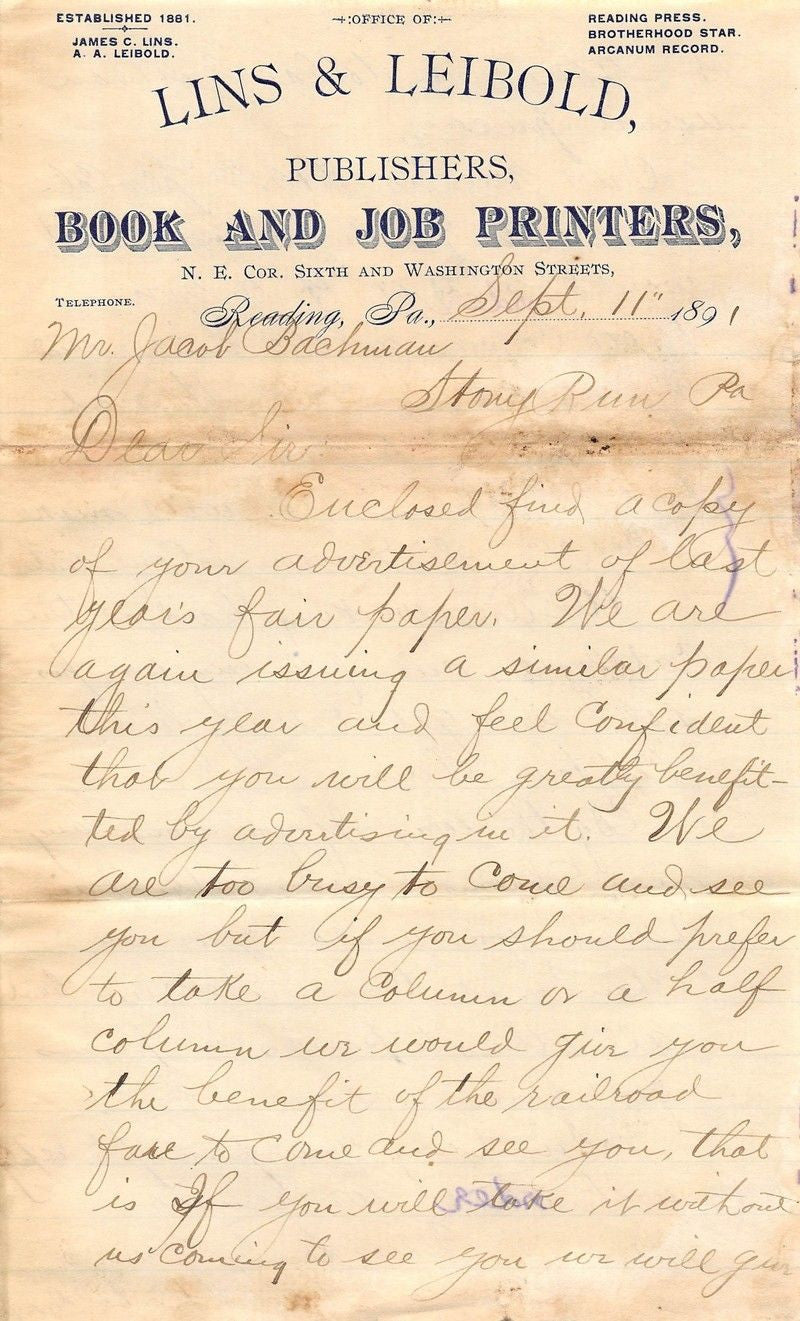 ESTABLISHED 1881.
JAMES C. LINS.
A. A. LEIBOLD.
OFFICE OF:
READING PRESS.
BROTHERHOOD STAR.
ARCANUM RECORD.
LINS & LEIBOLD,
PUBLISHERS,
BOOK AND JOB PRINTERS,
N. E. COR. SIXTH AND WASHINGTON STREETS,
TELEPHONE.
Reading, Pa., Sept. 11" 1891
Mr. Jacob Bachman
Stony Run Pa
Dear Sir
Enclosed find a copy
of your advertisement of last
year's fair paper. We are
again issuing a similar paper
this year and feel confident
that you will be greatly benefit-
ted by advertising in it. We
are too busy to come and see
you but if you should prefer
to take a column or a half
column we would give you
the benefit of the railroad
fare to come and see you, that
is If you will take it without
us coming to see you we will give